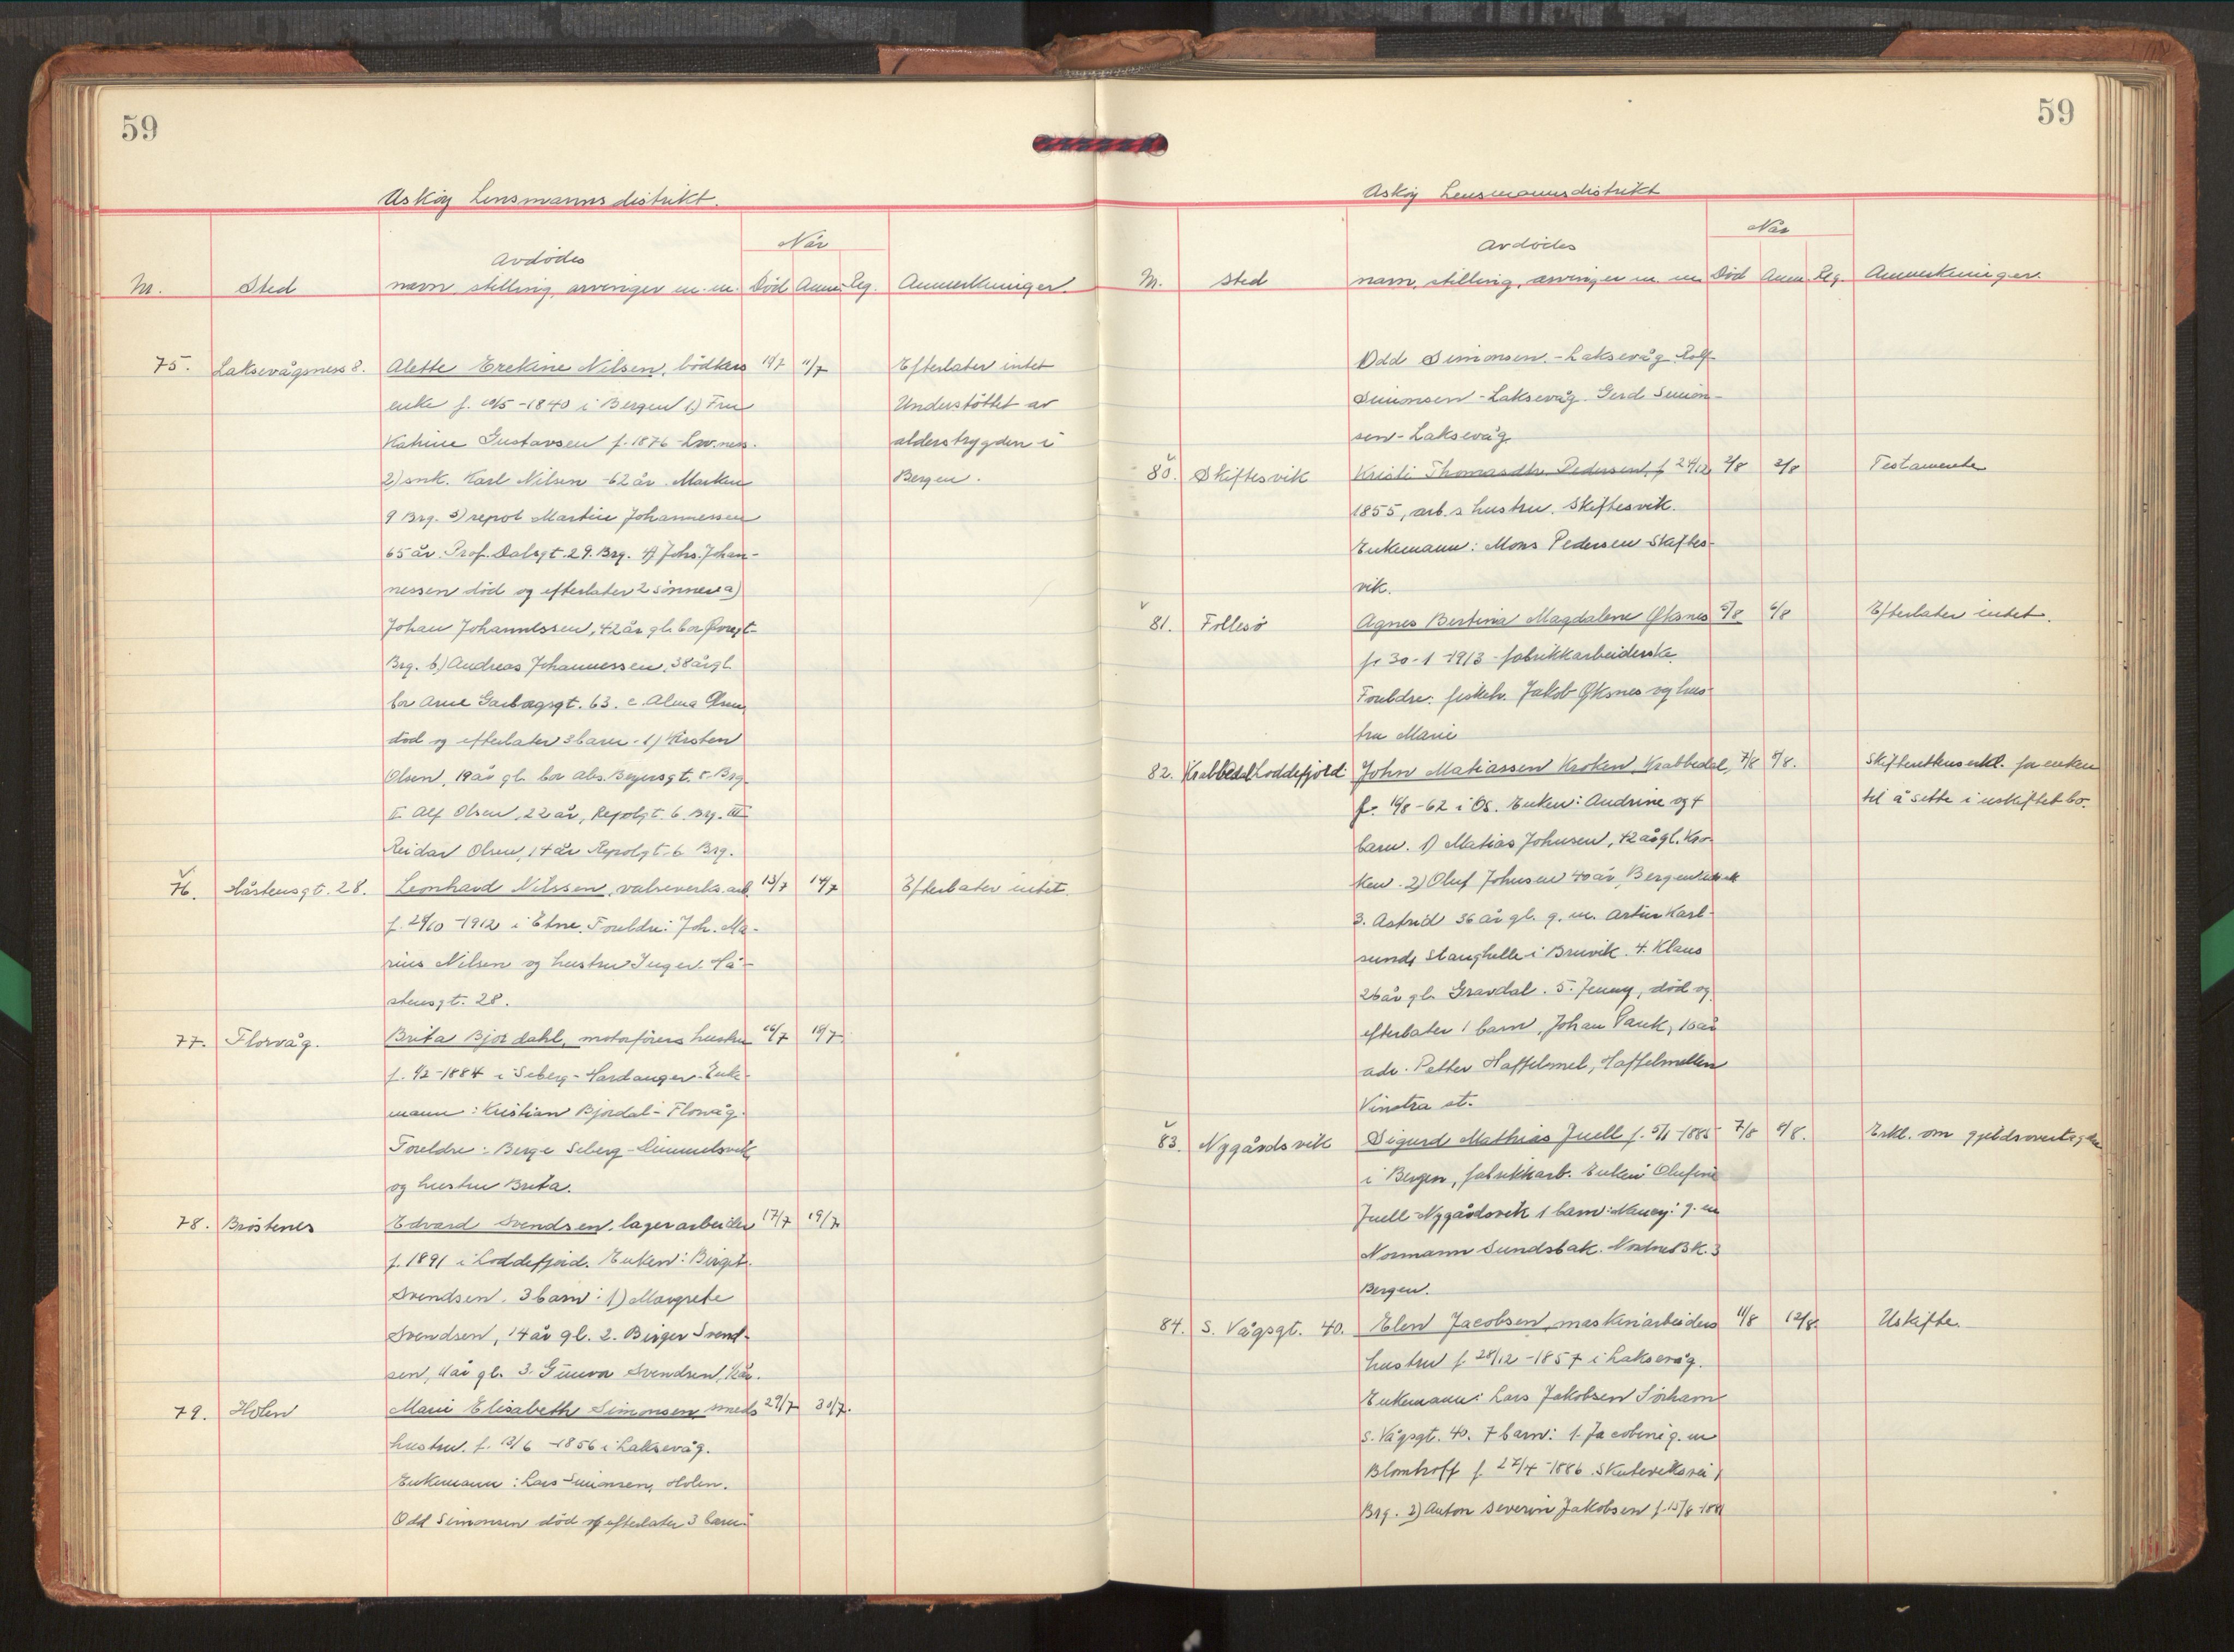 59
Askøy Lensmannsdistrikt.
Når
Avdødes
Nr. Sted navn, stilling, arvinger m.m. Död Anm. Reg. Anmerkninger.
75. Laksevågsness 8. Alette Erekine Nilsen, bödkers 10/7 11/7 Efterlater intet
enke f. 10/5-1840 i Bergen 1) Fru Understöttet av
Katrine Gustavsen f. 1876 Lw.ness. alderstrygden i
2) snk. Karl Nilsen -62 år Marken Bergen.
9 Brg. 3) repol Martin Johannessen
65 år. Prof. Dalsgt. 29. Brg. 4) Johs. Johan-
nessen död og efterlater 2 sönner a)
Johan Johannessen, 42 år gl. bor
Brg. b) Andreas Johannessen, 38 år gl.
bor Arne Garborgsgt. 63. c. Alma Olsen,
död og efterlater 3 barn. 1) Kirsten
Olsen, 19 år gl. bor Abs. Beyersgt. 5. Brg.
II. Alf Olsen, 22 år, Repslgt. 6. Brg. III
Reidar Olsen, 14 år Repslgt. 6 Brg.
76. Håsteinsgt. 28. Leonhard Nilssen, valseverks.arb. 13/7 14/7 Efterlater intet.
f. 29/10 -1912 i Etne. Foreldre: Joh. Ma-
rius Nilsen og hustru Inger. Hå-
steinsgt. 28.
77. Florvåg. Brita Bjordahl, motorförers hustru 16/7 18/7
f. 4/2-1884 i Seberg-Hardanger. Enke-
mann: Kristian Bjordal-Florvåg.
Foreldre: Berge Seberg-
og hustru Brita.
78. Bröstenes Edvard Svendsen, lagerarbeider 17/7 19/7
f. 1891 i Loddefjord. Enken: Birgit
Svendsen. 3 barn: 1) Margrete
Svendsen, 14 år gl. 2. Birger Svend-
sen, 11 år gl. 3. Gunvor Svendsen, 12 år.
79. Holen Marie Elisabeth Simonsen smeds 29/7 30/7.
hustru. f. 13/6 -1856 i Laksevåg.
Enkemann: Lars Simonsen, Holen.
Odd Simonsen död og efterlater 3 barn:
59
Askøy Lensmannsdistrikt
Når
Avdödes
Nr. Sted navn, stilling, arvinger m. m. Död Anm. Reg. Anmerkninger.
Odd Simonsen.-Laksevåg. Rolf
Simonsen-Laksevåg. Gerd Simon-
sen-Laksevåg.
80. Skiftesvik Kristi Thomasdtr. Pedersen, f. 24/12 2/8 2/8 Testamente
1855, arb.s hustru. Skiftesvik.
Enkemann: Mons Pedersen Skiftes-
vik.
81. Follesö Agnes Bertina Magdalene Øksnes 5/8 6/8 Efterlater intet.
f. 30-1-1913 - fabrikkarbeiderske.
Foreldre: fiskeh. Jakob Øksnes og hus-
tru Marie
82. Krabbedal Loddefjord John Matiassen Kroken, Krabbedal, 7/8 9/8. Skifterettens erkl. for enken
f. 16/8-62 i Os. Enken: Andrine og 4 til å sitte i uskiftet bo.
barn. 1) Matias Johnsen, 42 år gl. Kro-
ken. 2) Oluf Johnsen 40 år, Bergen
3. Astrid 36 år gl. g. m. Artur Karl-
sund, Stanghelle i Bruvik. 4. Klaus
26 år gl. Gravdal. 5. Jenny, död og
efterlater 1 barn, Johan Pauk, 10 år
adr. Petter Haffelmel, Haffelmellen
Vinstra st.
83. Nygårdsvik Sigurd Mathias Juell f. 5/1-1885 7/8 8/8. Erkl. om gjeldsovertagelse
i Bergen, fabrikkarb. Enken Olufine
Juell-Nygårdsvik 1 barn: Nancy: g. m
Normann Sundsbak. Nordnesbk. 3
Bergen.
84. S. Vågsgt. 40. Elen Jacobsen, maskinarbeiders 11/8 12/8. Uskifte.
hustru f. 28/12 -1857 i Laksevåg.
Enkemann: Lars Jakobsen Sörhavn
S. Vågsgt. 40. 7 barn: 1. Jacobine g. m
Blomhoff f. 27/4-1886. Skuteviksvei 1
Brg. 2) Anton Severin Jakobsen f. 15/6-1881